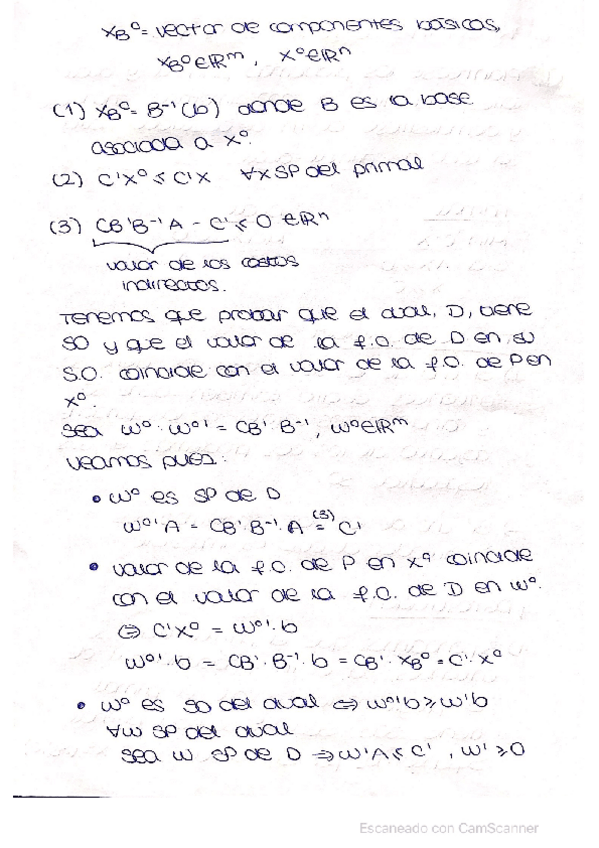 xB⁰ = vector de componentes básicas,
xB⁰ ∈ ℝᵐ, x⁰ ∈ ℝⁿ
(1) xB⁰ = B⁻¹(b) donde B es la base
asociada a x⁰.
(2) C'x⁰ ≤ C'x ∀x SP del primal
(3) CB'B⁻¹A - C' ≤ 0 ∈ ℝⁿ
valor de los costos
indirectos.
Tenemos que probar que el dual, D, tiene
SO y que el valor de la f.O. de D en su
S.O. coincide con el valor de la f.O. de P en
x⁰.
Sea w⁰. w⁰' = CB' B⁻¹, w⁰ ∈ ℝᵐ
Veamos pues:
• w⁰ es SP de D
w⁰'A = CB'·B⁻¹·A =⁽³⁾ C'
• valor de la f.O. de P en x⁰ coincide
con el valor de la f.O. de D en w⁰.
⇔ C'x⁰ = w⁰'·b
w⁰'·b = CB'·B⁻¹·b = CB'·xB⁰ = C'·x⁰
• w⁰ es SO del dual ⇔ w⁰'b ≥ w'b
∀w SP del dual
Sea w SP de D ⇒ w'A ≤ C', w' ≥ 0
Escaneado con CamScanner